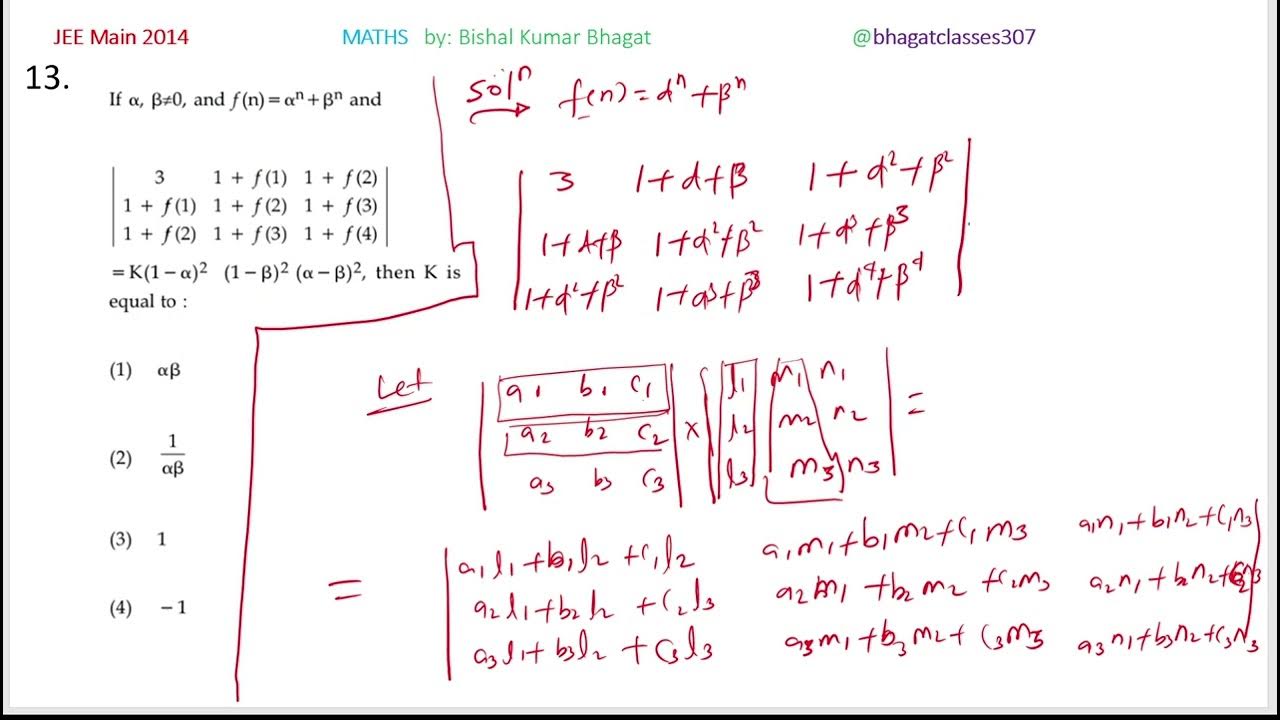 JEE Main 2014 MATHS by: Bishal Kumar Bhagat @bhagatclasses307
13.
If α, β≠0, and f(n)=αⁿ+βⁿ and
| 3 1 + f(1) 1 + f(2) |
| 1 + f(1) 1 + f(2) 1 + f(3) |
| 1 + f(2) 1 + f(3) 1 + f(4) |
=K(1−α)² (1−β)² (α−β)², then K is
equal to :
(1) αβ
(2) 1/αβ
(3) 1
(4) −1
Solⁿ f(n)=αⁿ+βⁿ
| 3 1+α+β 1+α²+β² |
| 1+α+β 1+α²+β² 1+α³+β³ |
| 1+α²+β² 1+α³+β³ 1+α⁴+β⁴ |
Let | a₁ b₁ c₁ | × | l₁ m₁ n₁ | =
| a₂ b₂ c₂ | | l₂ m₂ n₂ |
| a₃ b₃ c₃ | | l₃ m₃ n₃ |
= | a₁l₁+b₁l₂+c₁l₂ a₁m₁+b₁m₂+c₁m₃ a₁n₁+b₁n₂+c₁n₃ |
| a₂l₁+b₂l₂+c₂l₃ a₂m₁+b₂m₂+c₂m₃ a₂n₁+b₂n₂+c₂n₃ |
| a₃l₁+b₃l₂+c₃l₃ a₃m₁+b₃m₂+c₃m₃ a₃n₁+b₃n₂+c₃n₃ |